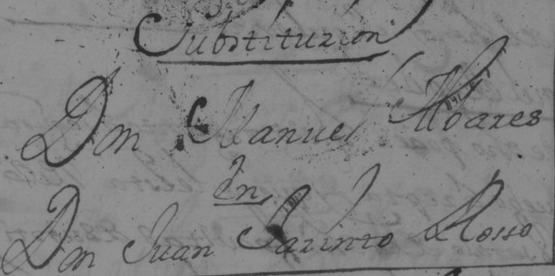 Substituzion
Don Manuel Alvares
En
Don Juan Jazinto Rosso